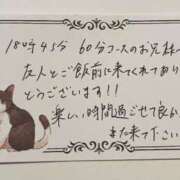 18時45分 60分コースのお兄様へ
友人とご飯前に来てくれてあり
とうございます!!
楽しい時間過ごせて良か
また来て下さい